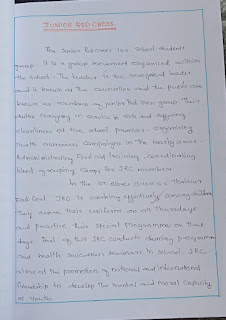 JUNIOR RED CROSS
The Junior Red cross is a School students
group. It is a group Movement organised within
the school. The teacher is the recognised leader
and is known as the counsellor and the pupils are
known as members of junior Red cross group. Their
duties carrying in service to sick and suffering
cleanliness of the school premises. Organising
health awareness campaigns in the nearby areas.
Administrating First aid training, coordinating
blood grouping Camps for JRC members.
In the
JRC is working effectively among children
They wore their uniform on all Thursdays
and practice this special programme on that
days. of this JRC conducts training programme
and health awareness seminars in school. JRC
aims at the promotion of national and international
friendship to develop the mental and moral capacity
of Youth.